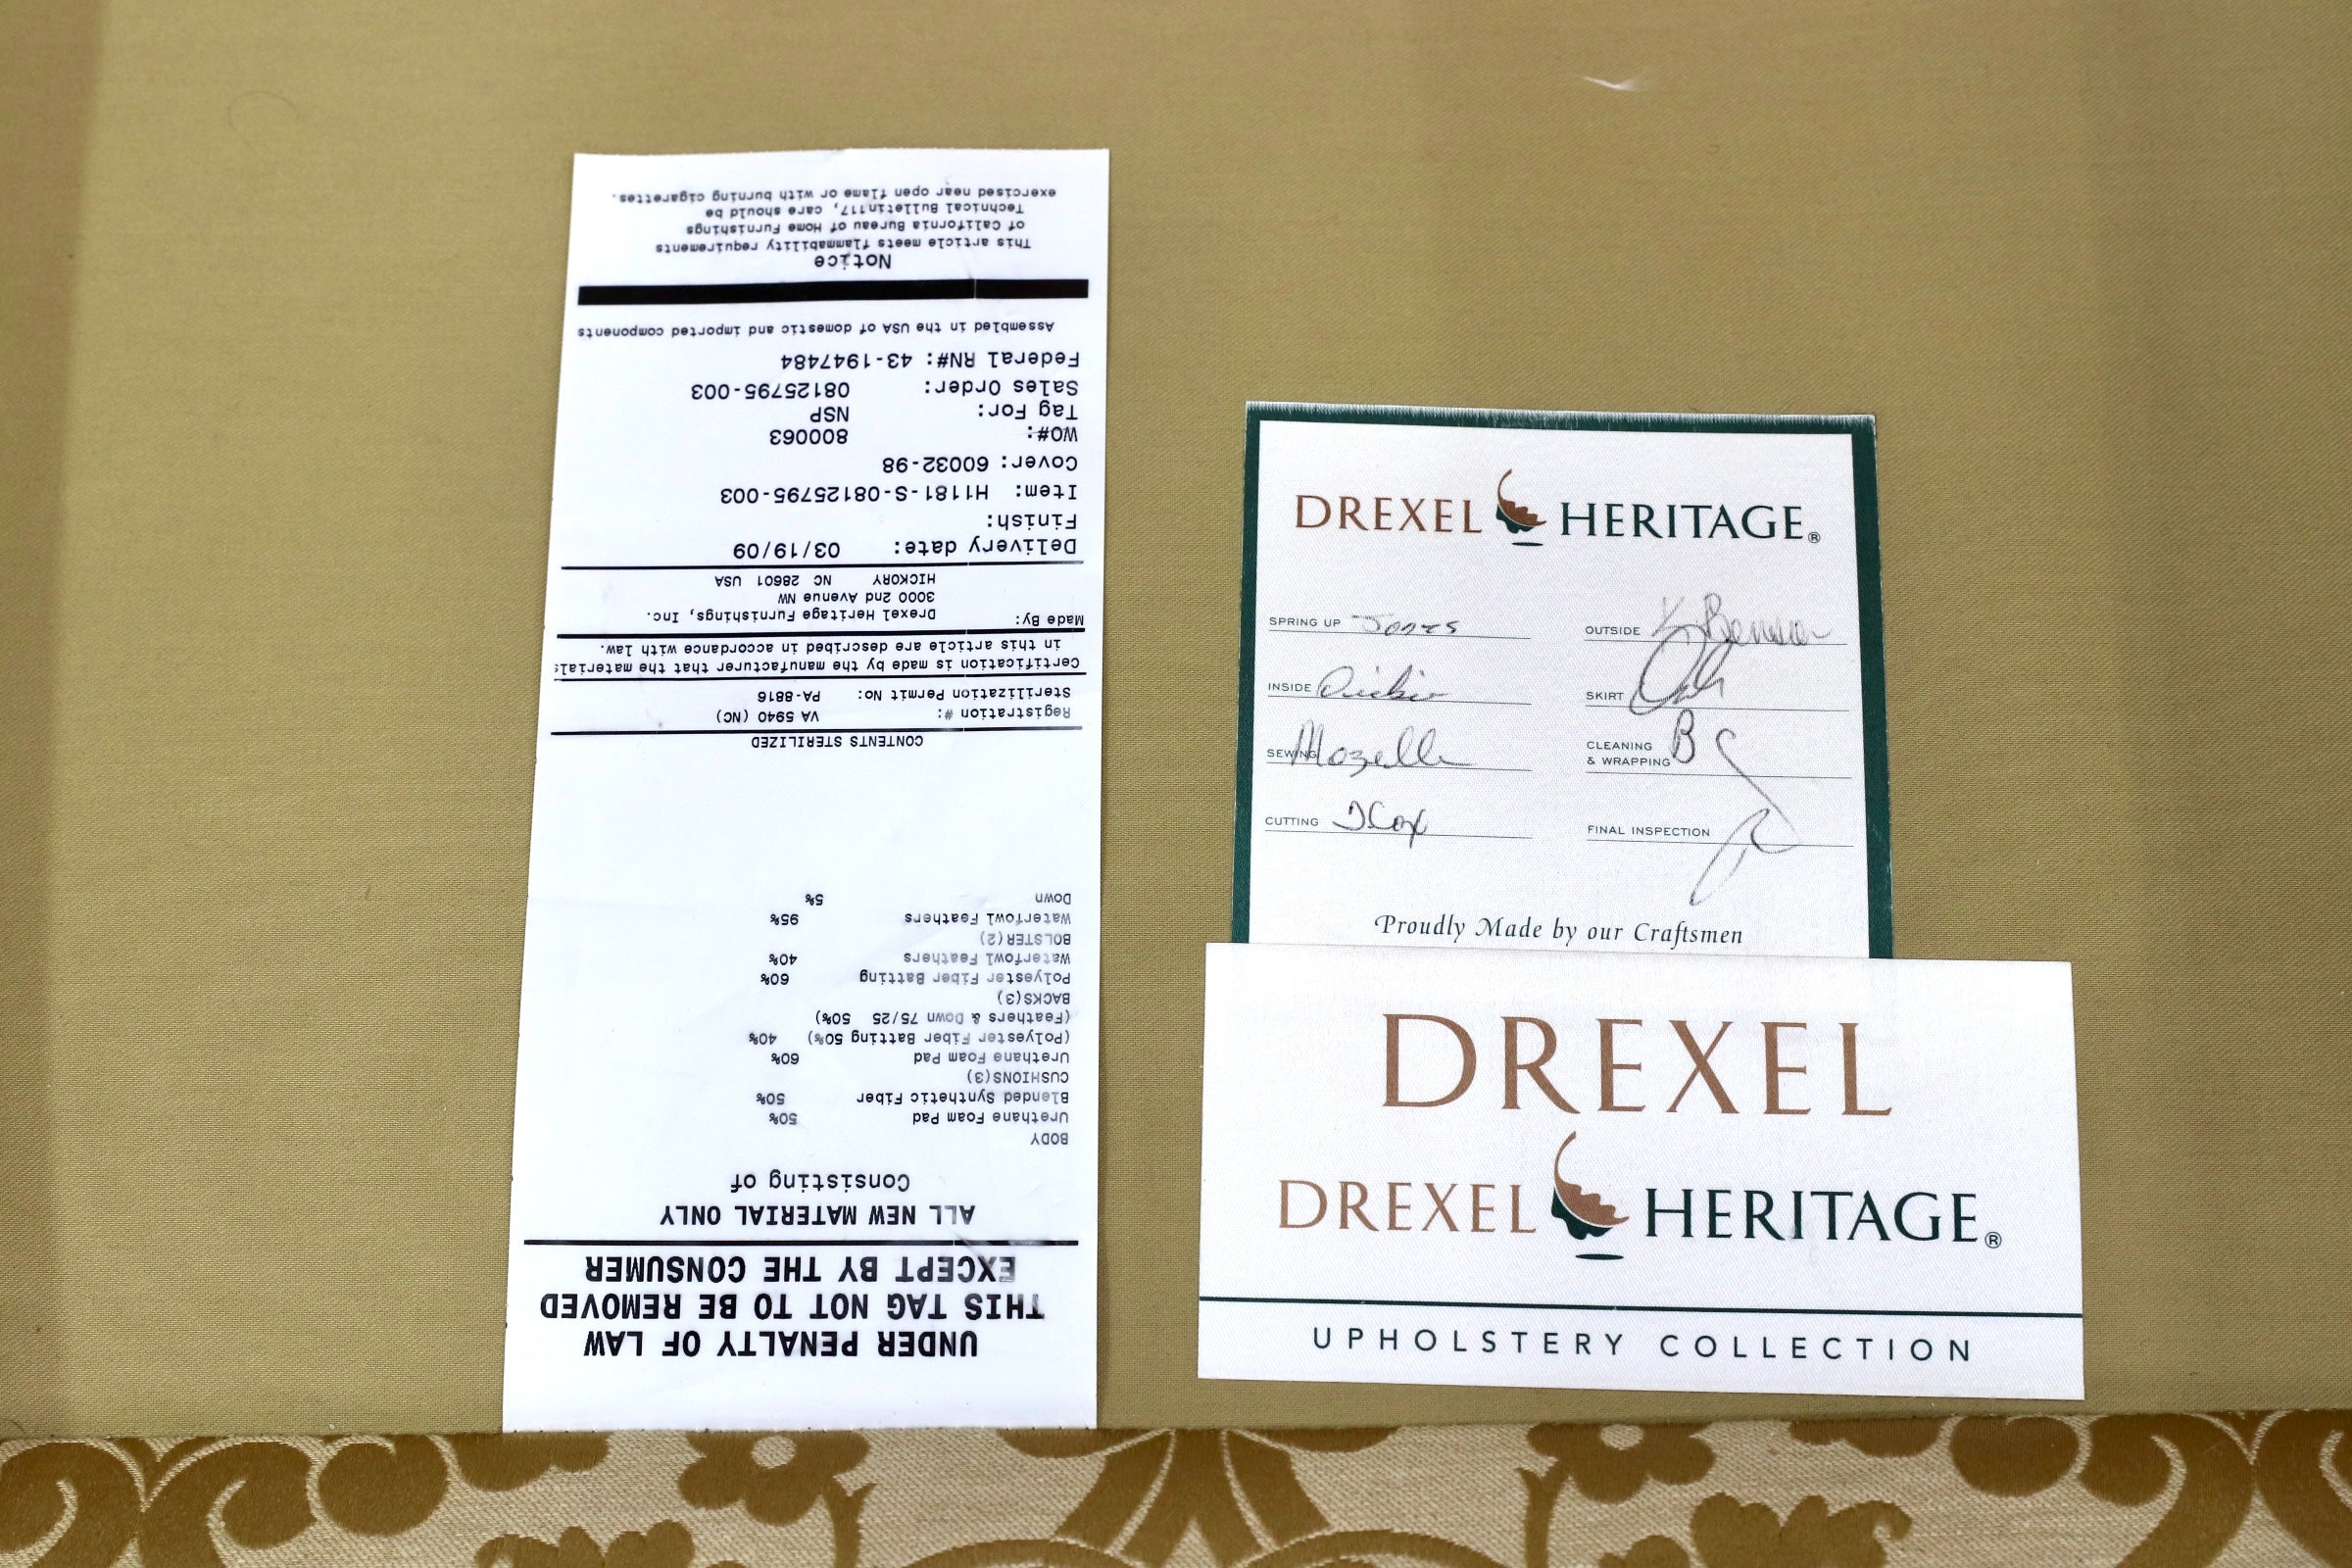 UNDER PENALTY OF LAW
THIS TAG NOT TO BE REMOVED
EXCEPT BY THE CONSUMER
ALL NEW MATERIAL ONLY
Consisting of
BODY
Urethane Foam Pad 50%
Blended Synthetic Fiber 50%
CUSHIONS(3)
Urethane Foam Pad 60%
(Polyester Fiber Batting 50%) 40%
(Feathers & Down 75/25 50%)
BACKS(3)
Polyester Fiber Batting 60%
Waterfowl Feathers 40%
BOLSTER(2)
Waterfowl Feathers 95%
Down 5%
CONTENTS STERILIZED
Registration #: VA 5940 (NC)
Sterilization Permit No: PA-8816
Certification is made by the manufacturer that the materials
in this article are described in accordance with law.
Made By: Drexel Heritage Furnishings, Inc.
3000 2nd Avenue NW
HICKORY NC 28601 USA
Delivery date: 03/19/09
Finish:
Item: H1181-S-08125795-003
Cover: 60032-98
WO#: 800063
Tag For: NSP
Sales Order: 08125795-003
Federal RN#: 43-1947484
Assembled in the USA of domestic and imported components
Notice
This article meets flammability requirements
of California Bureau of Home Furnishings
Technical Bulletin117, care should be
exercised near open flame or with burning cigarettes.
DREXEL HERITAGE®
SPRING UP Jones
INSIDE
SEWING Mozelle
CUTTING DCox
OUTSIDE
SKIRT
CLEANING
& WRAPPING B
FINAL INSPECTION
Proudly Made by our Craftsmen
DREXEL
DREXEL HERITAGE®
UPHOLSTERY COLLECTION